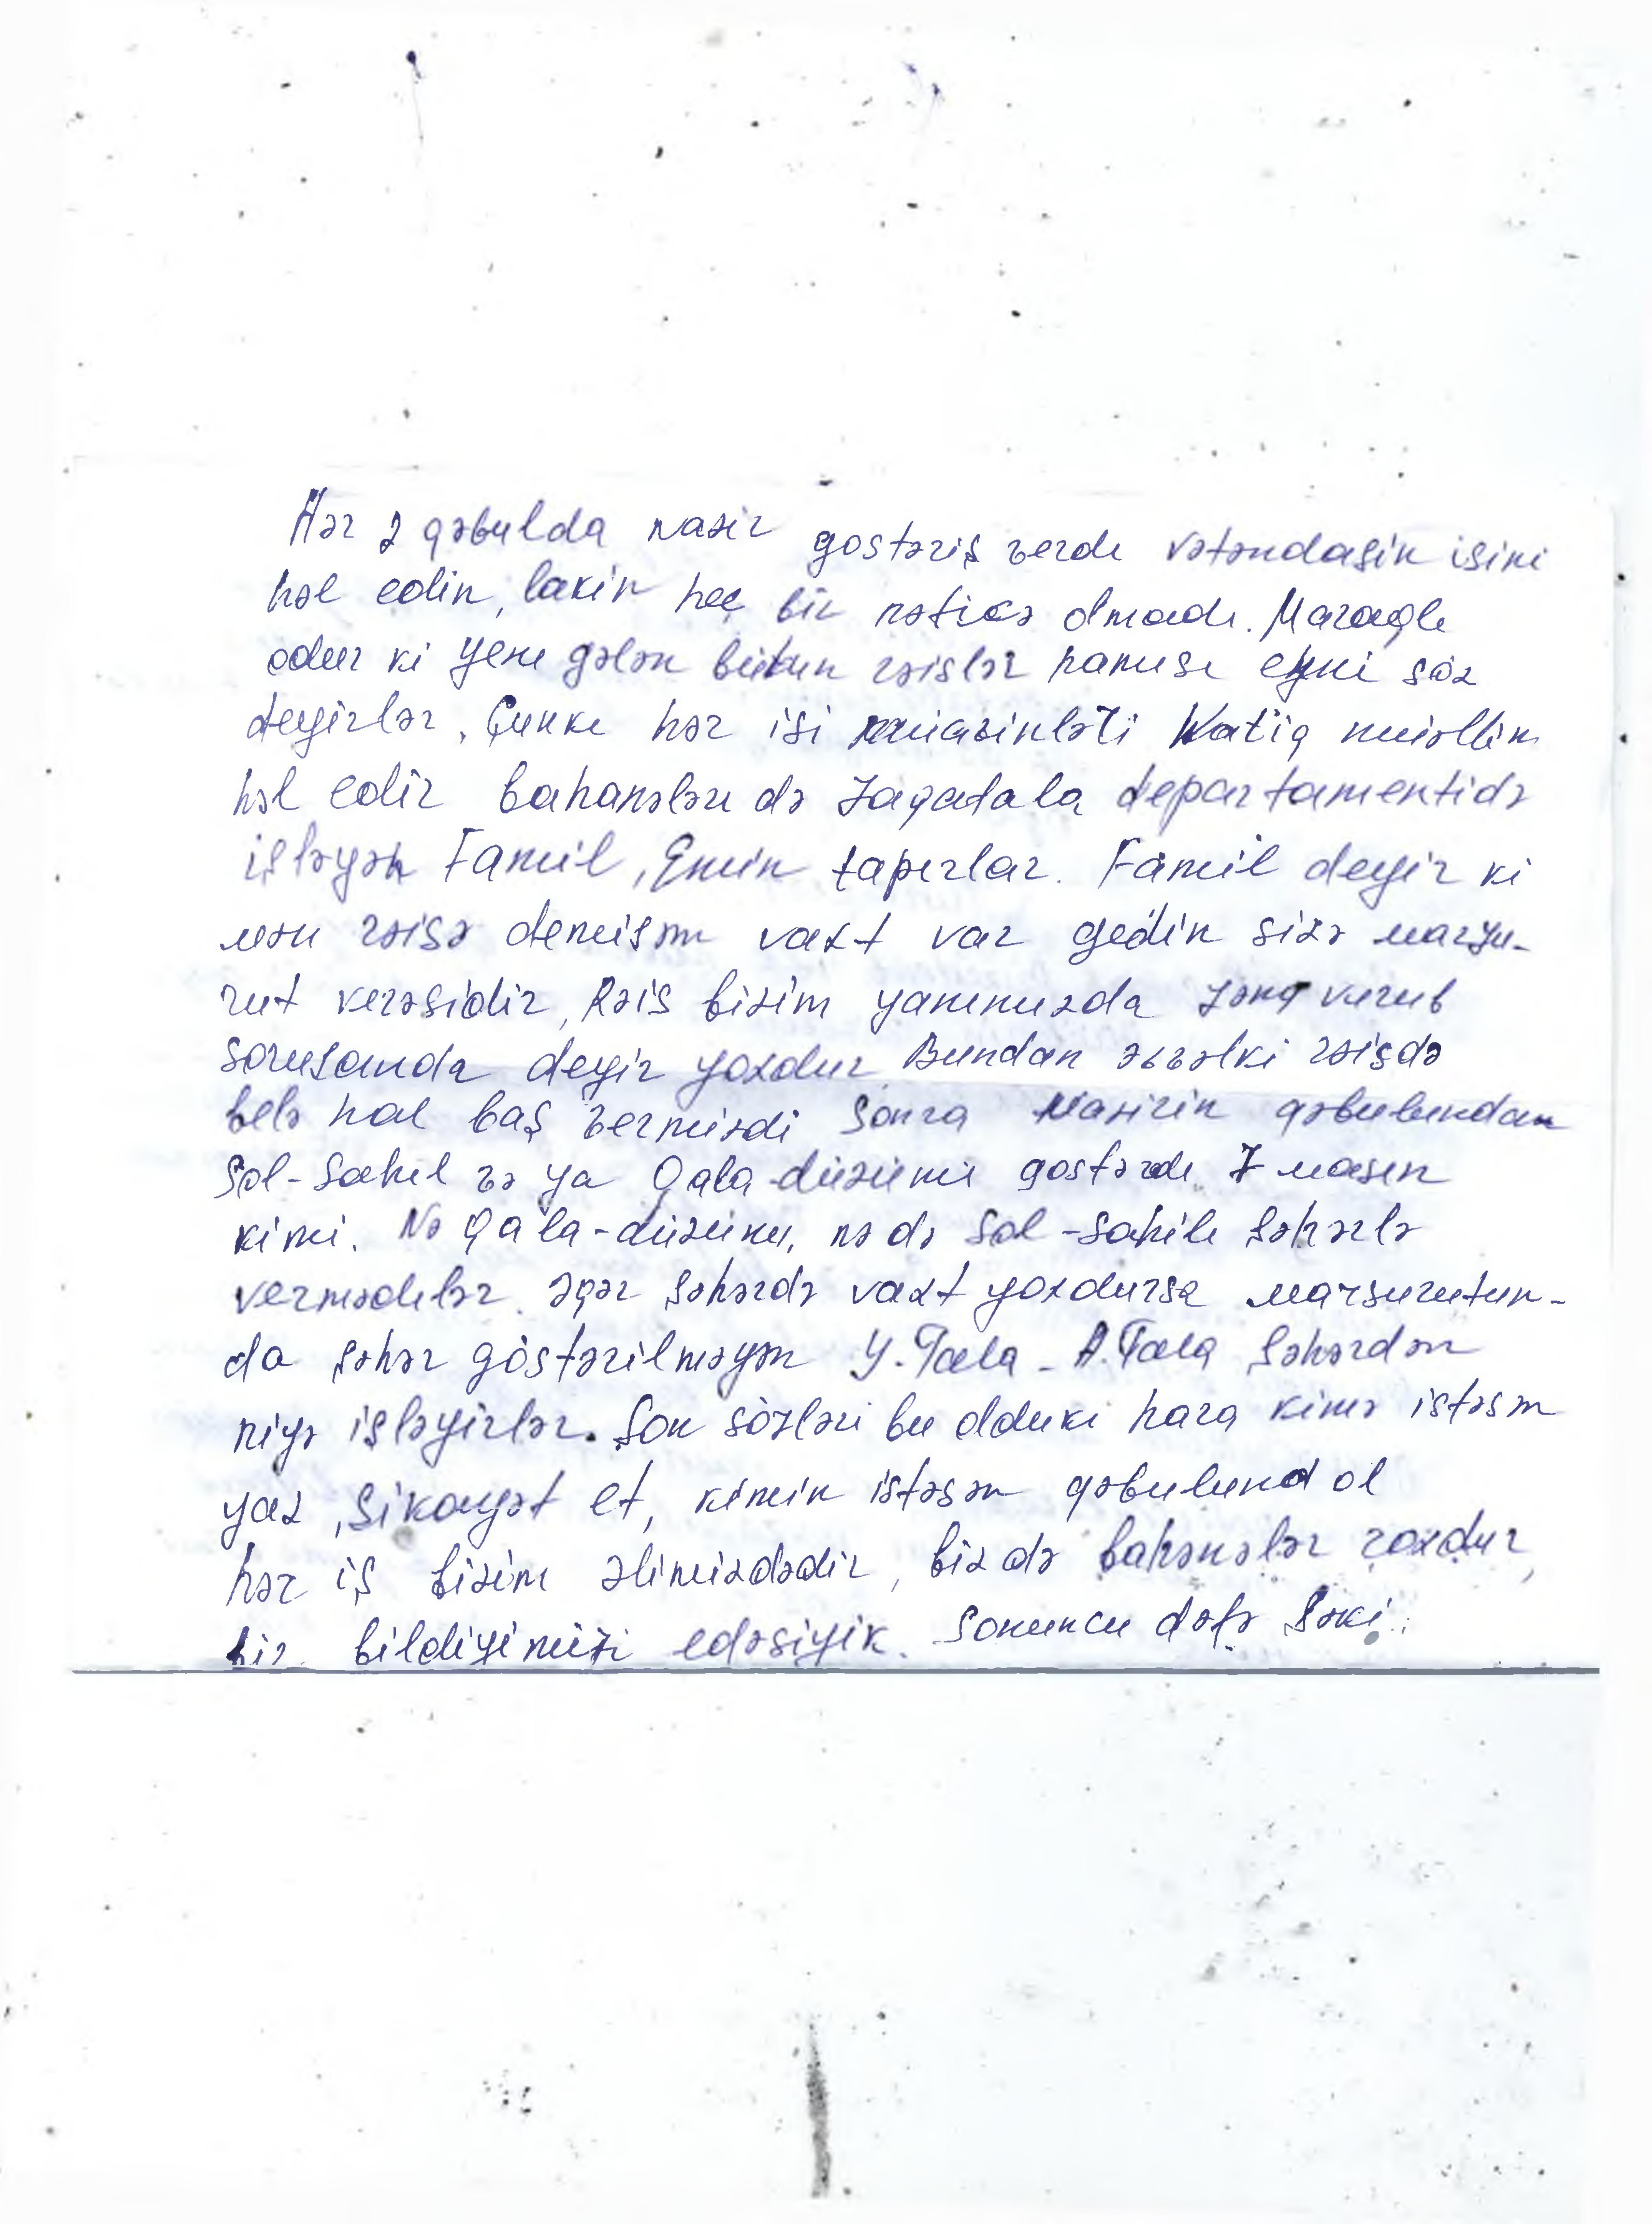 Hər 2 qəbulda nazir gostəriş verdi vətəndaşin işini
həl edin, lakin heç bir nəticə olmadı. Maraqlı
odur ki yeni gələn bütün rəislər hamısı eyni söz
deyirlər, Çunki hər işi müavinləri Natiq müəllim
həl edir bahanələri də Zaqatala departamentidə
işləyən Famil, Emin tapırlar. Famil deyir ki
mən rəisə demişəm vaxt var gedin sizə marşu-
rut verəsidir, Rəis bizim yanımızda zəng vurub
soruşanda deyir yoxdur. Bundan əvvəlki rəisdə
belə hal baş vermişdi sonra Nazirin qəbulundan
Sol-Sahil və ya Qala-düzünü gostərdi 7 maşın
kimi. Nə Qala-düzünü, nə də Sol-Sahili şəhərlə
vermədılər. Əgər şəhərdə vaxt yoxdursa marşurutun-
da şəhər göstərilməyən Y.Tala - A.Tala şəhərdən
niyə işləyirlər. Son sözləri bu olduki hara kimə istəsən
yaz, Şikayət et, kimin istəsən qəbulund ol
hər iş bizim əlimizdədir, biz də bahənələr çoxdur,
biz bildiyimizi edəsiyik. Sonuncu dəfə Şəki